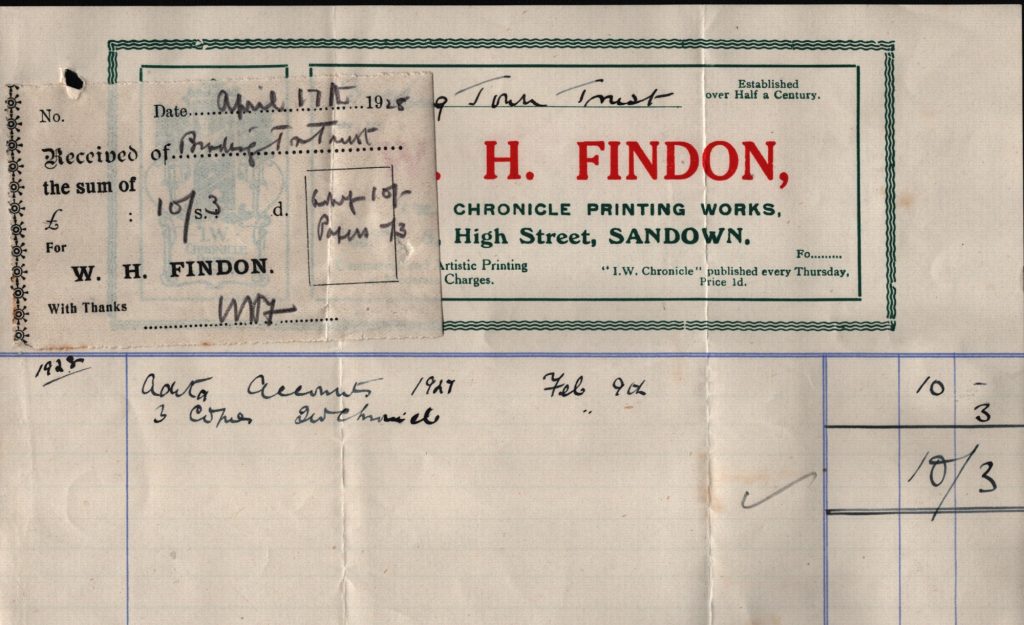 No.
Date April 17th 1928
Received of Brading Tn Trust
the sum of
£ : 10/ s. 3 d.
Advt 10/-
Papers -/3
For
W. H. FINDON.
With Thanks WHF
g Town Trust
Established
over Half a Century.
. H. FINDON,
CHRONICLE PRINTING WORKS,
, High Street, SANDOWN.
Artistic Printing
Charges.
Fo.........
"I.W. Chronicle" published every Thursday,
Price 1d.
I.W.
CHRONICLE
1928
Accounts 1927 Feb 9th 10 -
3 Copies IW Chronicle " 3
10/3